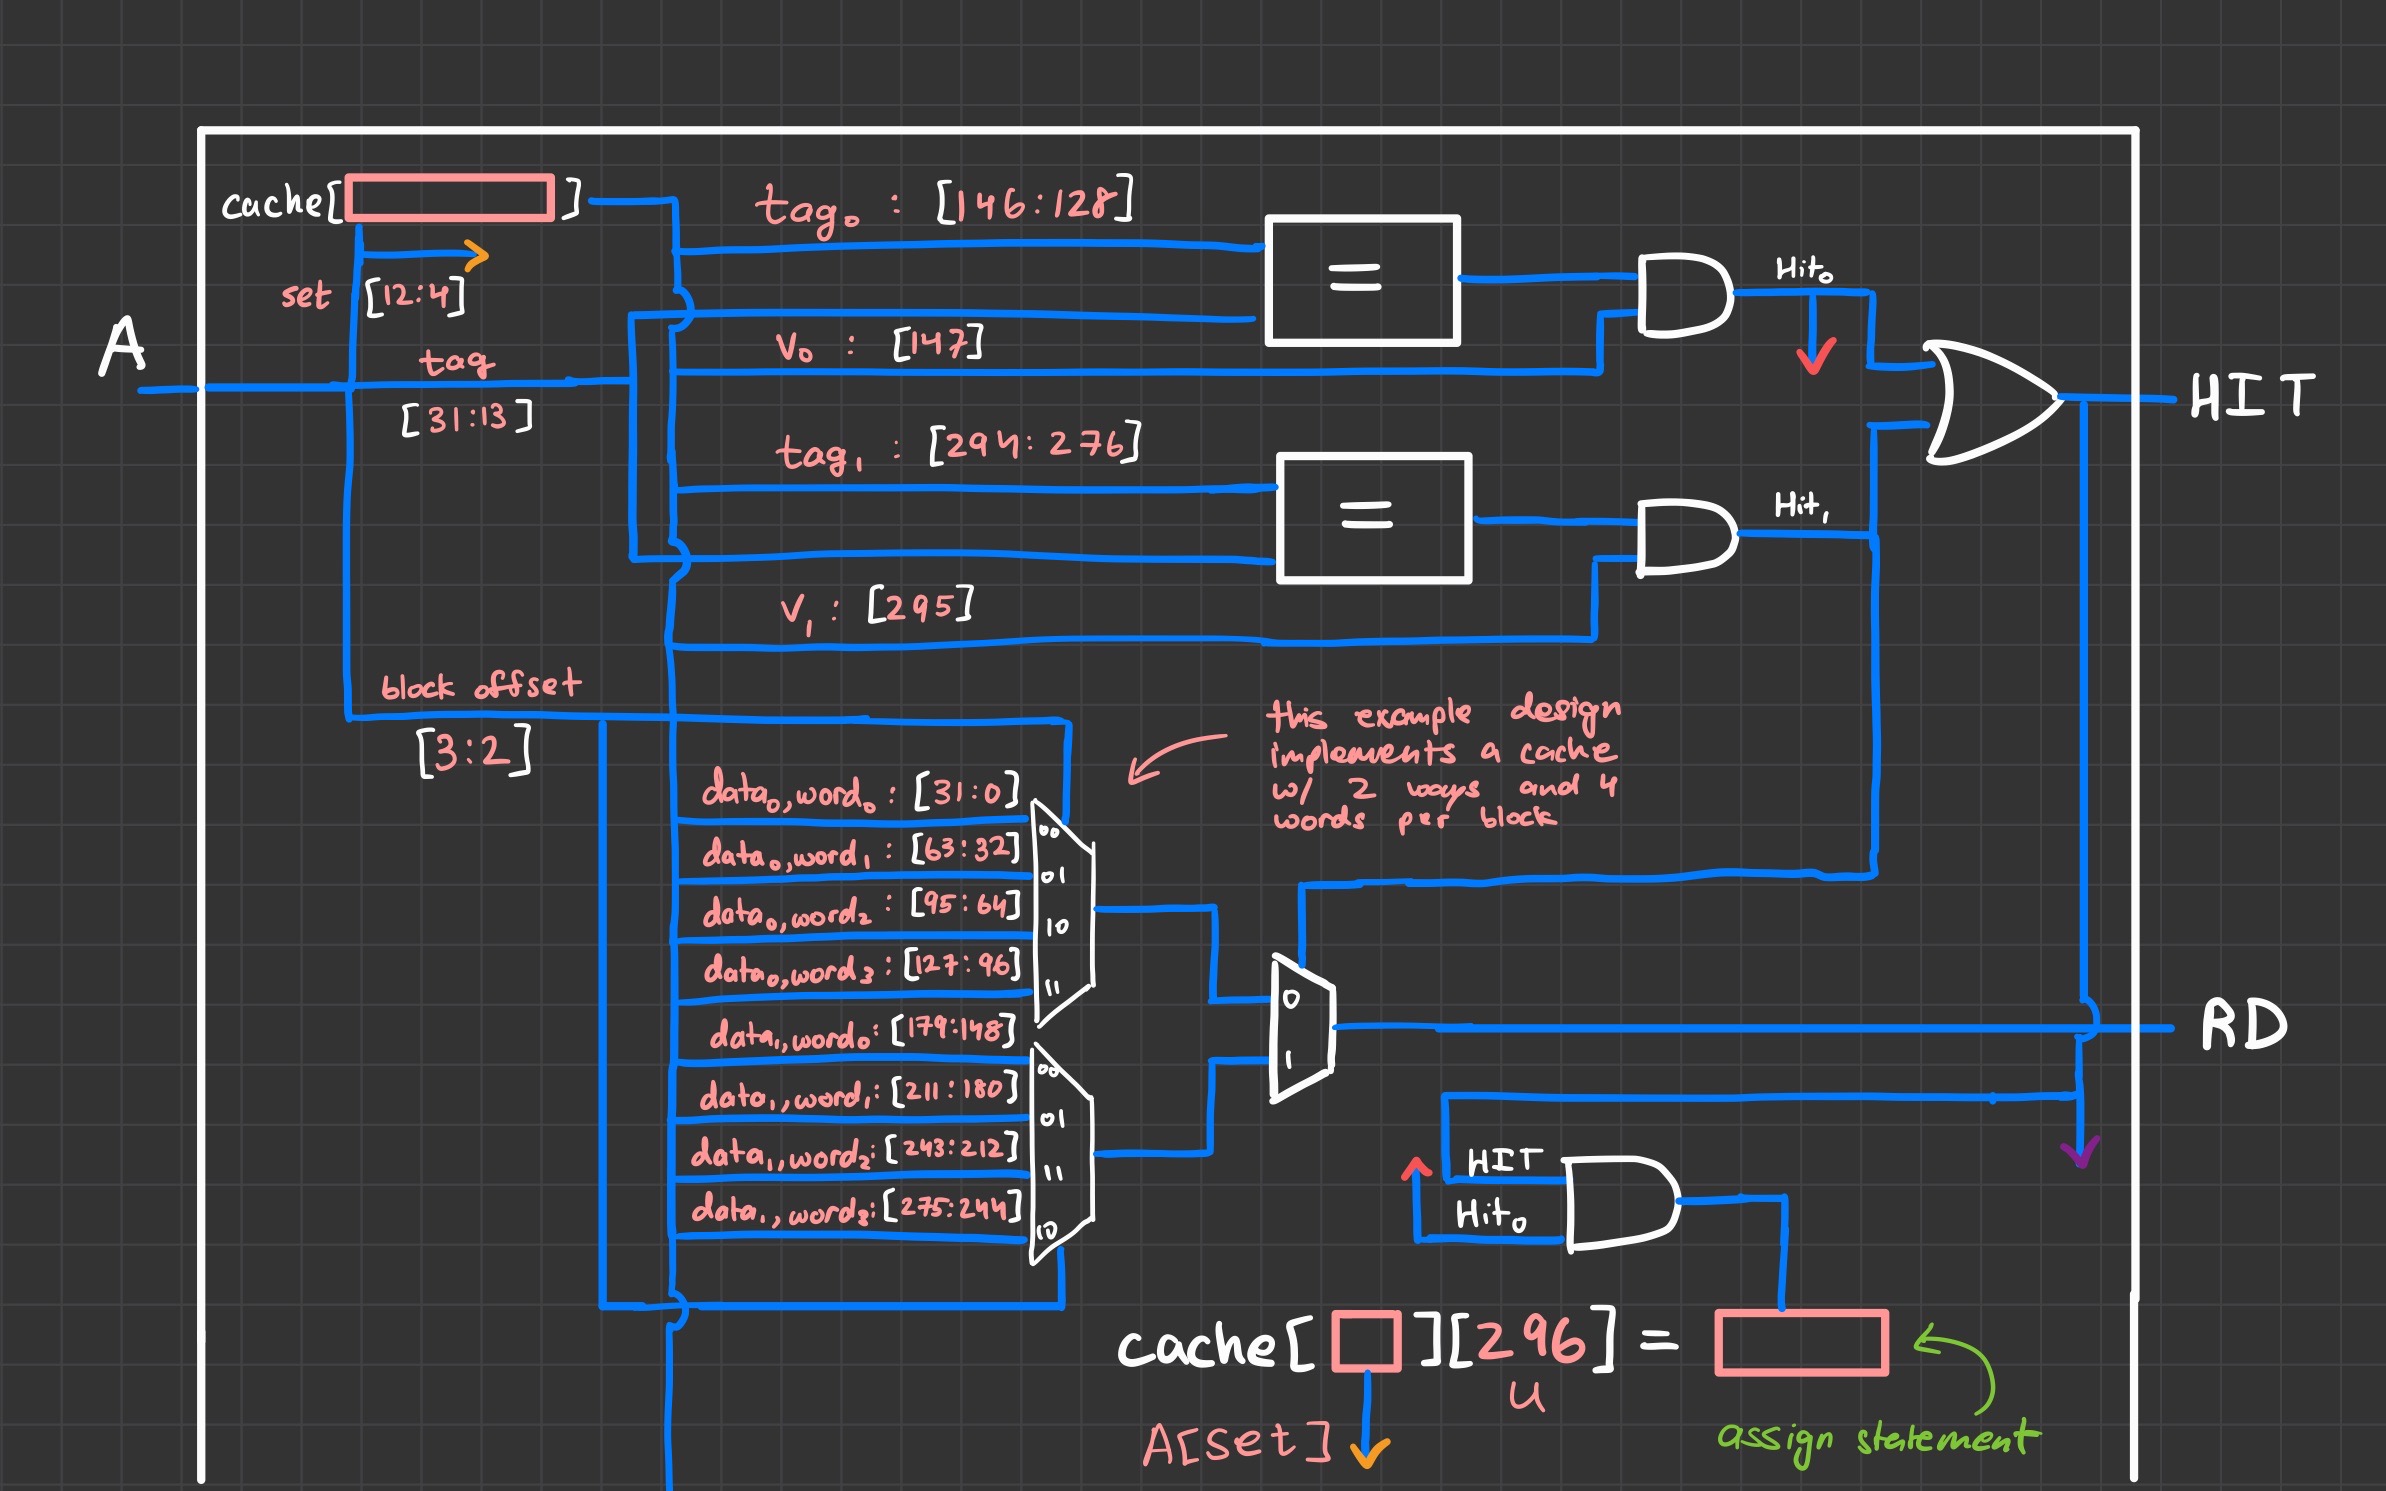 cache[ ]
tag₀ : [146:128]
=
Hit₀
set [12:4]
A
V₀ : [147]
tag
[31:13]
HIT
tag₁ : [294:276]
=
Hit₁
V₁ : [295]
block offset
[3:2]
this example design
implements a cache
w/ 2 ways and 4
words per block
data₀,word₀ : [31:0]
00
data₀,word₁ : [63:32]
01
data₀,word₂ : [95:64]
10
data₀,word₃ : [127:96]
11
0
1
RD
data₁,word₀: [179:148]
00
data₁,word₁: [211:180]
01
data₁,word₂: [243:212]
11
data₁,word₃: [275:244]
10
HIT
Hit₀
cache[ ][296] =
u
A[set]
assign statement